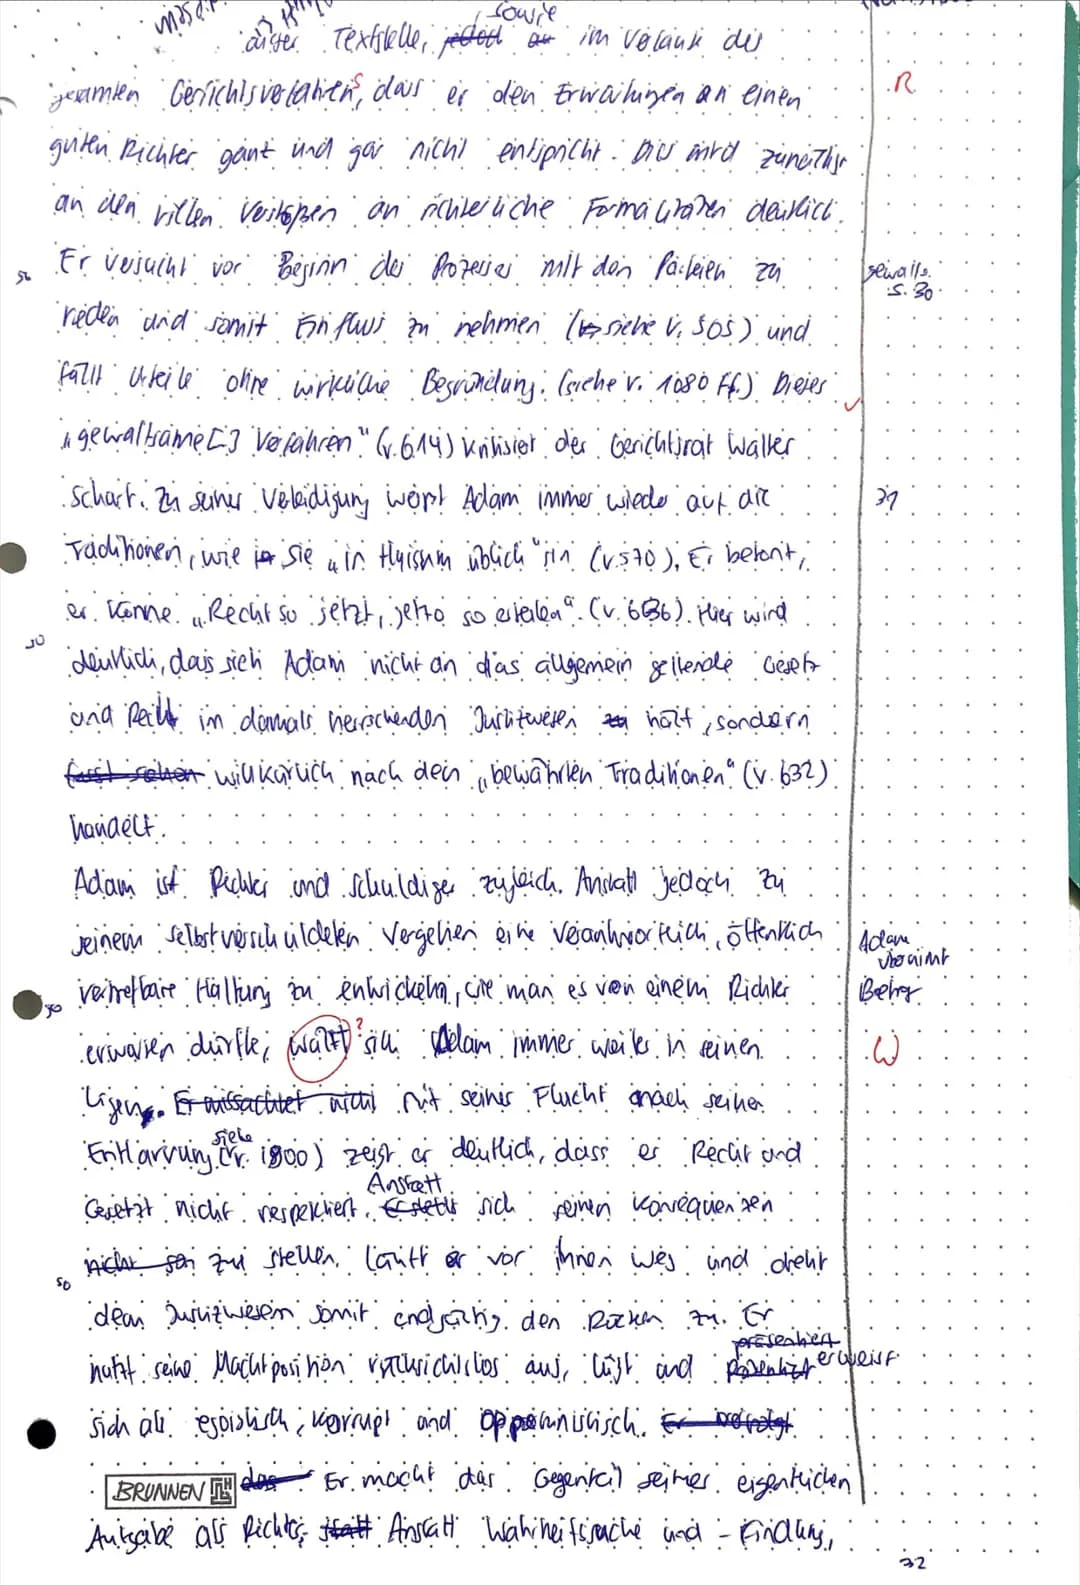 sowie
dieser Textstelle, jedoch au im Verlauf des
gesamten Gerichtsverfahrens, dass er den Erwartungen an einen
R
guten Richter ganz und gar nicht entspricht. Dies wird zunächst
an den vielen Verstößen an richterliche Formalitäten deutlich.
Er versucht vor Beginn des Prozesses mit den Parteien zu
S. 30
reden und somit Einfluss zu nehmen (siehe V. 505) und
fällt Urteile ohne wirkliche Begründung. (siehe V. 1080 ff.) Dieses
„gewaltsame[] Verfahren" (V. 614) kritisiert der Gerichtsrat Walter
scharf. Zu seiner Verteidigung weist Adam immer wieder auf die
31
Traditionen, wie sie „in Huisum üblich" sin (V. 570). Er betont,
er könne „Recht so jetzt, jetzo so erteilen". (V. 636). Hier wird
deutlich, dass sich Adam nicht an das allgemein geltende Gesetz
und Recht im damals herrschenden Justizwesen zu hält, sondern
fast schon willkürlich nach den „bewährten Traditionen" (V. 632)
handelt.
Adam ist Richter und Schuldiger zugleich. Anstatt jedoch zu
seinem selbstverschuldeten Vergehen eine verantwortlich, öffentlich
Adam
vertretbare Haltung zu entwickeln, wie man es von einem Richter
erwarten dürfte, wälzt ? sich Adam immer weiter in seinen
W
Lügen. Er missachtet nicht Mit seiner Flucht nach seiner
Entlarvung (siehe V. 1900) zeigt er deutlich, dass er Recht und
Gesetzt nicht respektiert. Anstatt Er stellt sich seinen Konsequenzen
50
nicht son zu stellen, läuft er vor ihnen weg und dreht
dem Justizwesen somit endgültig den Rücken zu. Er
nutzt seine Machtposition rücksichtslos aus, lügt und präsentiert erweist
sich als egoistisch, korrupt und opportunistisch. Er
BRUNNEN das Er macht das Gegenteil seiner eigentlichen
Aufgabe als Richter, statt Anstatt Wahrheitssuche und -Findung,
32